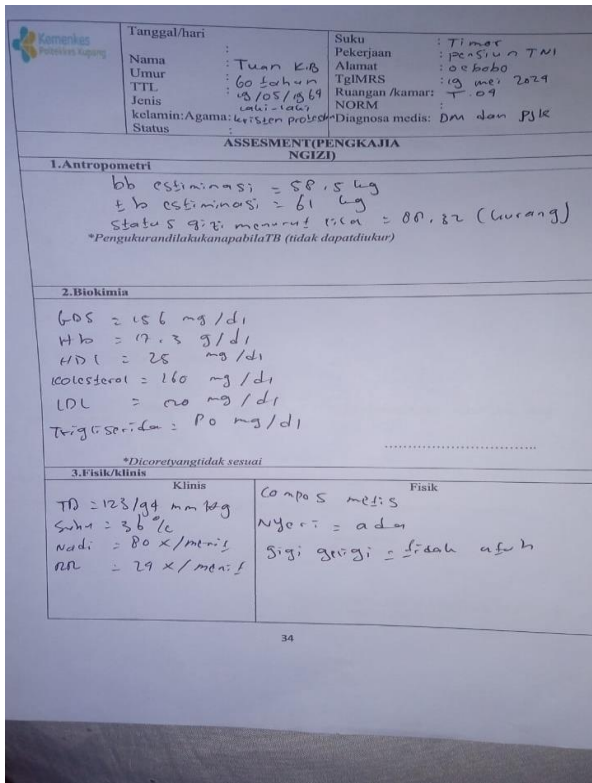 Kemenkes
Poltekkes Kupang
Tanggal/hari :
Nama : Tuan K.B
Umur : 60 tahun
TTL : 19/05/1964
Jenis laki-laki
kelamin:Agama: kristen protestan
Status :
Suku : Timor
Pekerjaan : pensiun TNI
Alamat : oebobo
TglMRS : 19 mei 2024
Ruangan /kamar: T.09
NORM :
Diagnosa medis: DM dan PJK
ASSESMENT(PENGKAJIA
NGIZI)
1.Antropometri
bb estiminasi = 58,5 kg
tb estiminasi = 61 kg
status gizi menurut lila = 88,32 (kurang)
*PengukurandilakukanapabilaTB (tidak dapatdiukur)
2.Biokimia
GDS = 156 mg/dl
Hb = 17.3 g/dl
HDl = 25 mg/dl
kolesterol = 160 mg/dl
LDL = mg/dl
Trigliserida = mg/dl
*Dicoretyangtidak sesuai
3.Fisik/klinis
Klinis
TD = 123/94 mmHg
Suhu = 36 °c
Nadi = 80 x/menit
RR = 24 x/menit
Fisik
Compos metis
Nyeri = ada
gigi gerigi = tidak utuh
34